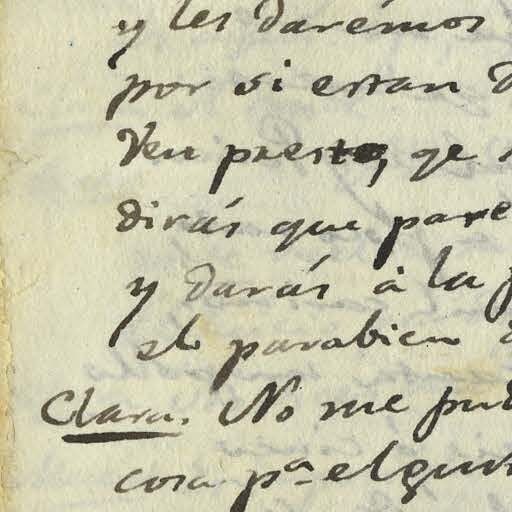 y les daremos
por si estan
Ven presto, qe
dirás que pare
y darás á la
el parabien
Clara. No me pu
cosa pa. el gus